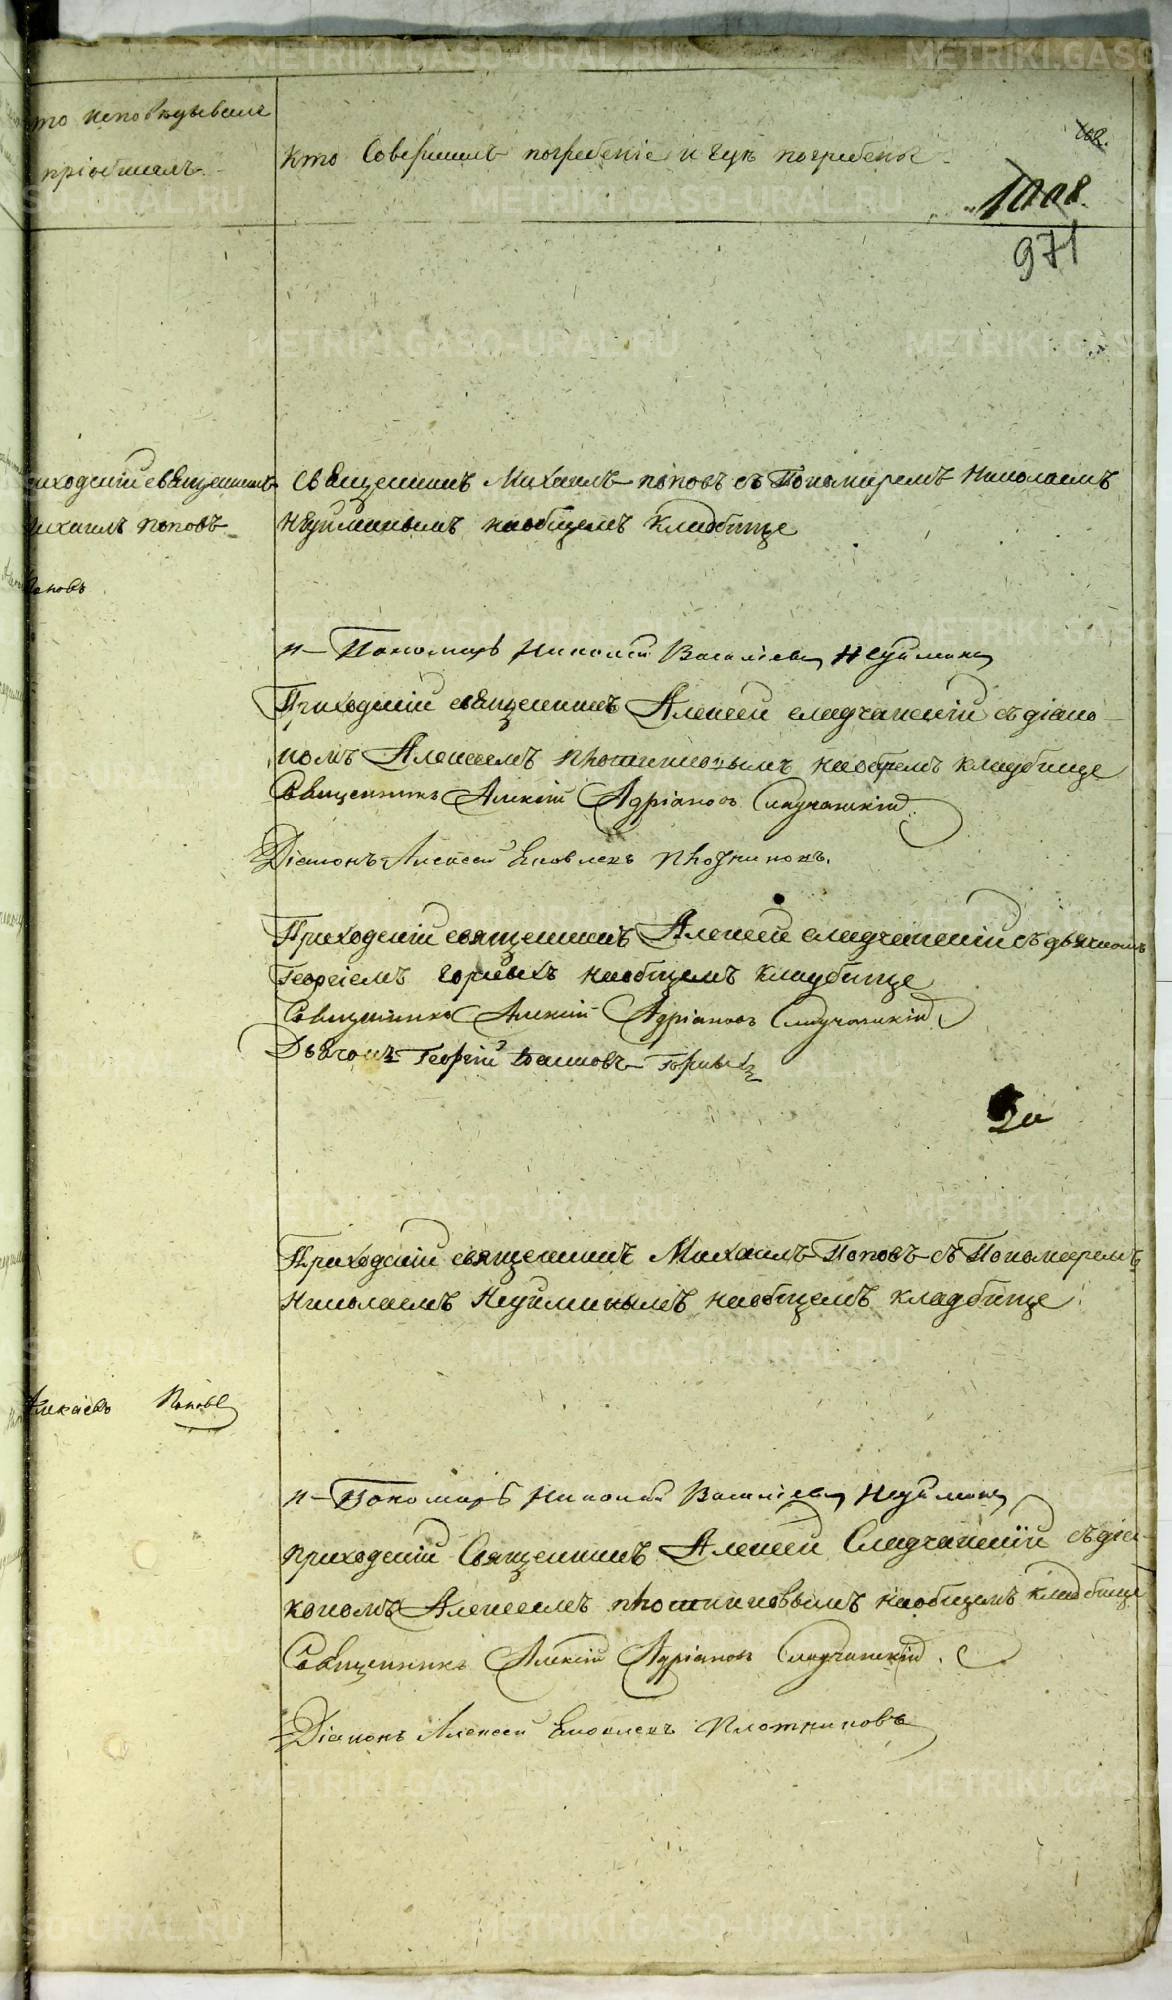 то исповѣдывалъ
пріобщалъ
кто совершилъ погребеніе и гдѣ погребены
1008.
971
иходскій священникъ
ихаилъ поповъ
Поповъ
священникъ Михаилъ поповъ съ Пономаремъ Николаемъ
Неуйминымъ наобщемъ кладбище
и Пономарь Николай Васильевъ Неуйминъ
Приходскій священникъ Алексей сладчанскій съ діако-
номъ Алексеемъ плотниковымъ наобщемъ кладбище
Священникъ Алексій Адріановъ Сладчанскій
Діаконъ Алексей Яковлевъ плотниковъ.
Приходскій священникъ Алексей сладчанскій съ дьячкомъ
Георгіемъ горныхъ наобщемъ кладбище
Священникъ Алексій Адріановъ Сладчанскій
Дьячокъ Георгій Горныхъ
Приходскій священникъ Михаилъ Поповъ съ Пономаремъ
Николаемъ Неуйминымъ наобщемъ кладбище
Алексѣевъ Поповъ
и Пономарь Николай Васильевъ Неуйминъ
приходскій Священникъ Алексей Сладчанскій съ діа-
кономъ Алексеемъ плотниковымъ наобщемъ кладбище
Священникъ Алексій Адріановъ Сладчанскій.
Діаконъ Алексей Яковлевъ Плотниковъ
METRIKI.GASO-URAL.RU